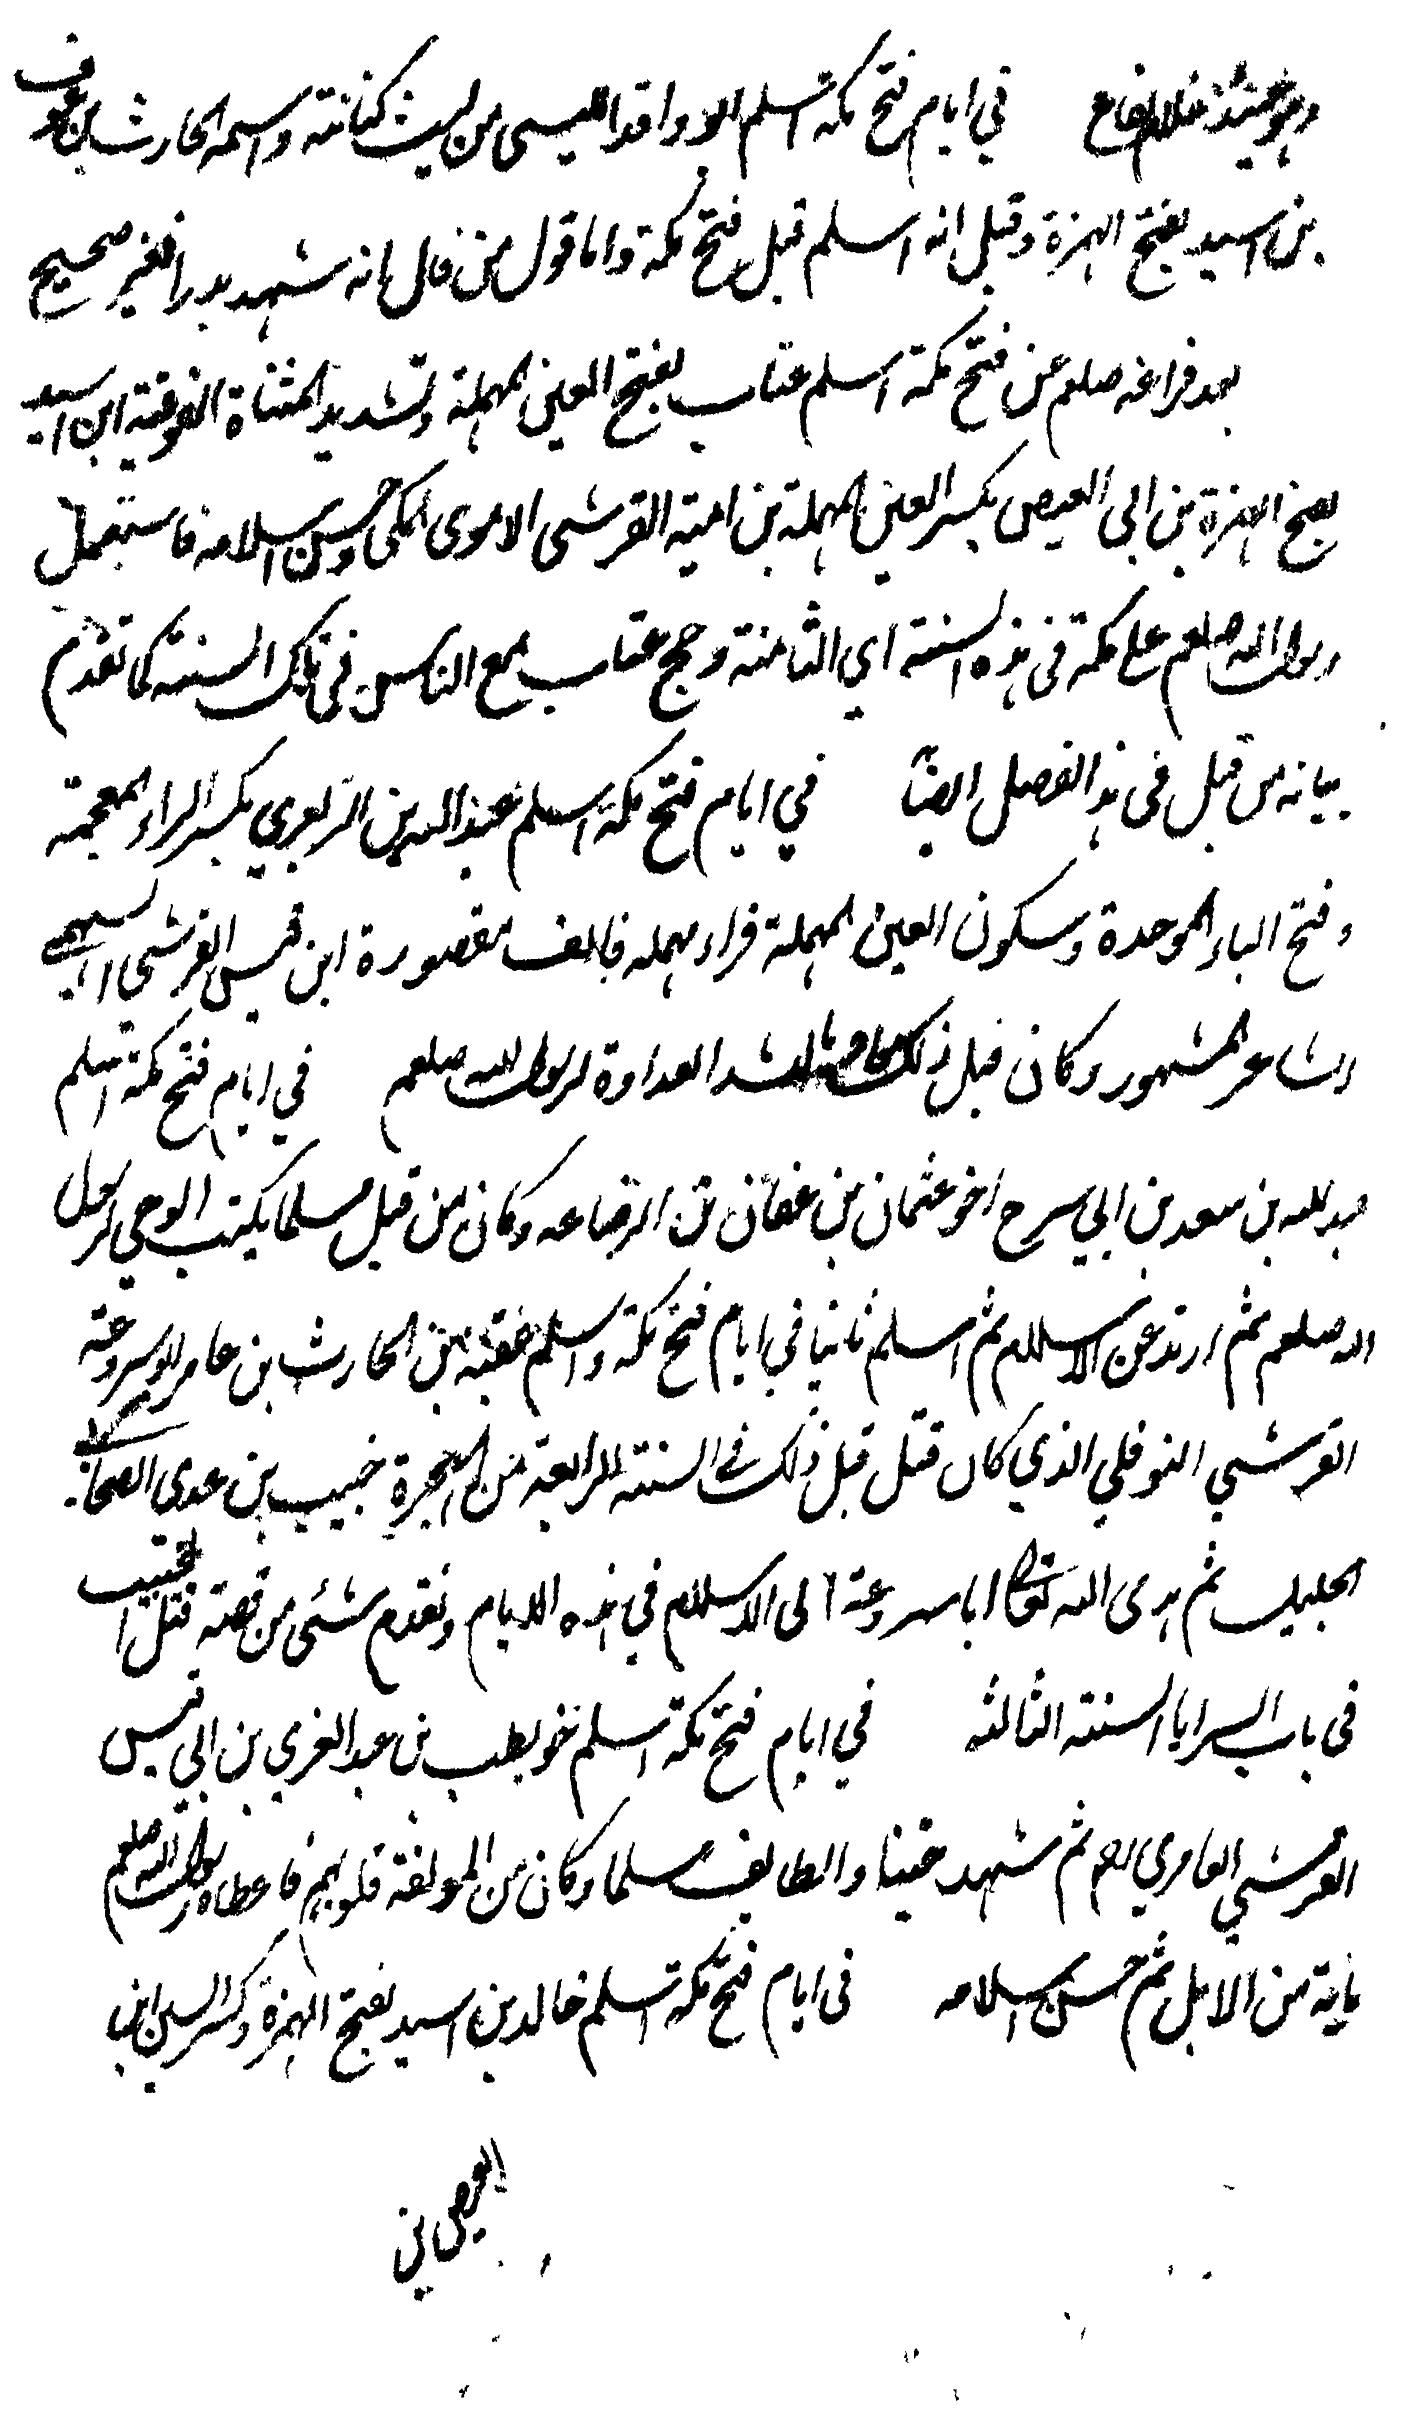 وهو حينئذ غلام يفاع في ايام فتح مكة اسلم ابو واقد الليسى من ليث كنانة واسمه الحارث بن عوف
بن اسيد بفتح الهمزة وقيل انه اسلم قبل فتح مكة واما قول من قال بانه شهد بدرا فغير صحيح
بعد فراغه صلعم عن فتح مكة اسلم عتاب بفتح العين المهملة وتشديد المثناة الفوقية ابن اسيد
بفتح الهمزة بن ابى العيص بكسر العين المهملة بن امية القرشى الاموى المكى وحسن اسلامه فاستعمل
رسول الله صلعم على مكة فى هذه السنة اي الثامنة وحج عتاب مع الناس فى تلك السنة كما تقدم
بيانه من قبل فى هذا الفصل ايضا في ايام فتح مكة اسلم عبد الله بن الزبعري بكسر الزاء المعجمة
وفتح الباء الموحدة وسكون العين المهملة فراء مهملة فالف مقصورة ابن قيس القرشي السهمي
الشاعر المشهور وكان قبل ذلك اشد العداوة لرسول الله صلعم في ايام فتح مكة اسلم
عبد الله بن سعد بن ابي سرح اخو عثمان بن عفان من الرضاعه وكان من قبل مسلما يكتب الوحي لرسول
الله صلعم ثم ارتد عن الاسلام ثم اسلم ثانيا في ايام فتح مكة واسلم عقبة بن الحارث بن عامر ابو سروعة
القرشي النوفلي الذي كان قتل قبل ذلك في السنة الرابعة من الهجرة خبيب بن عدي الصحابي
الجليل ثم هدى الله تعالى ابا سروعة الى الاسلام في هذه الايام وتقدم شئى من قصة قتل خبيب
فى باب السرايا السنة الثالثة في ايام فتح مكة اسلم حويطب بن عبد العزي بن ابي قيس
القرشي العامري ثم شهد حنينا والطايف مسلما وكان من المولفة قلوبهم فاعطاه رسول الله صلعم
ماية من الابل ثم حسن اسلامه فى ايام فتح مكة اسلم خالد بن اسيد بفتح الهمزة وكسر السين ابن ابى
العيص بن